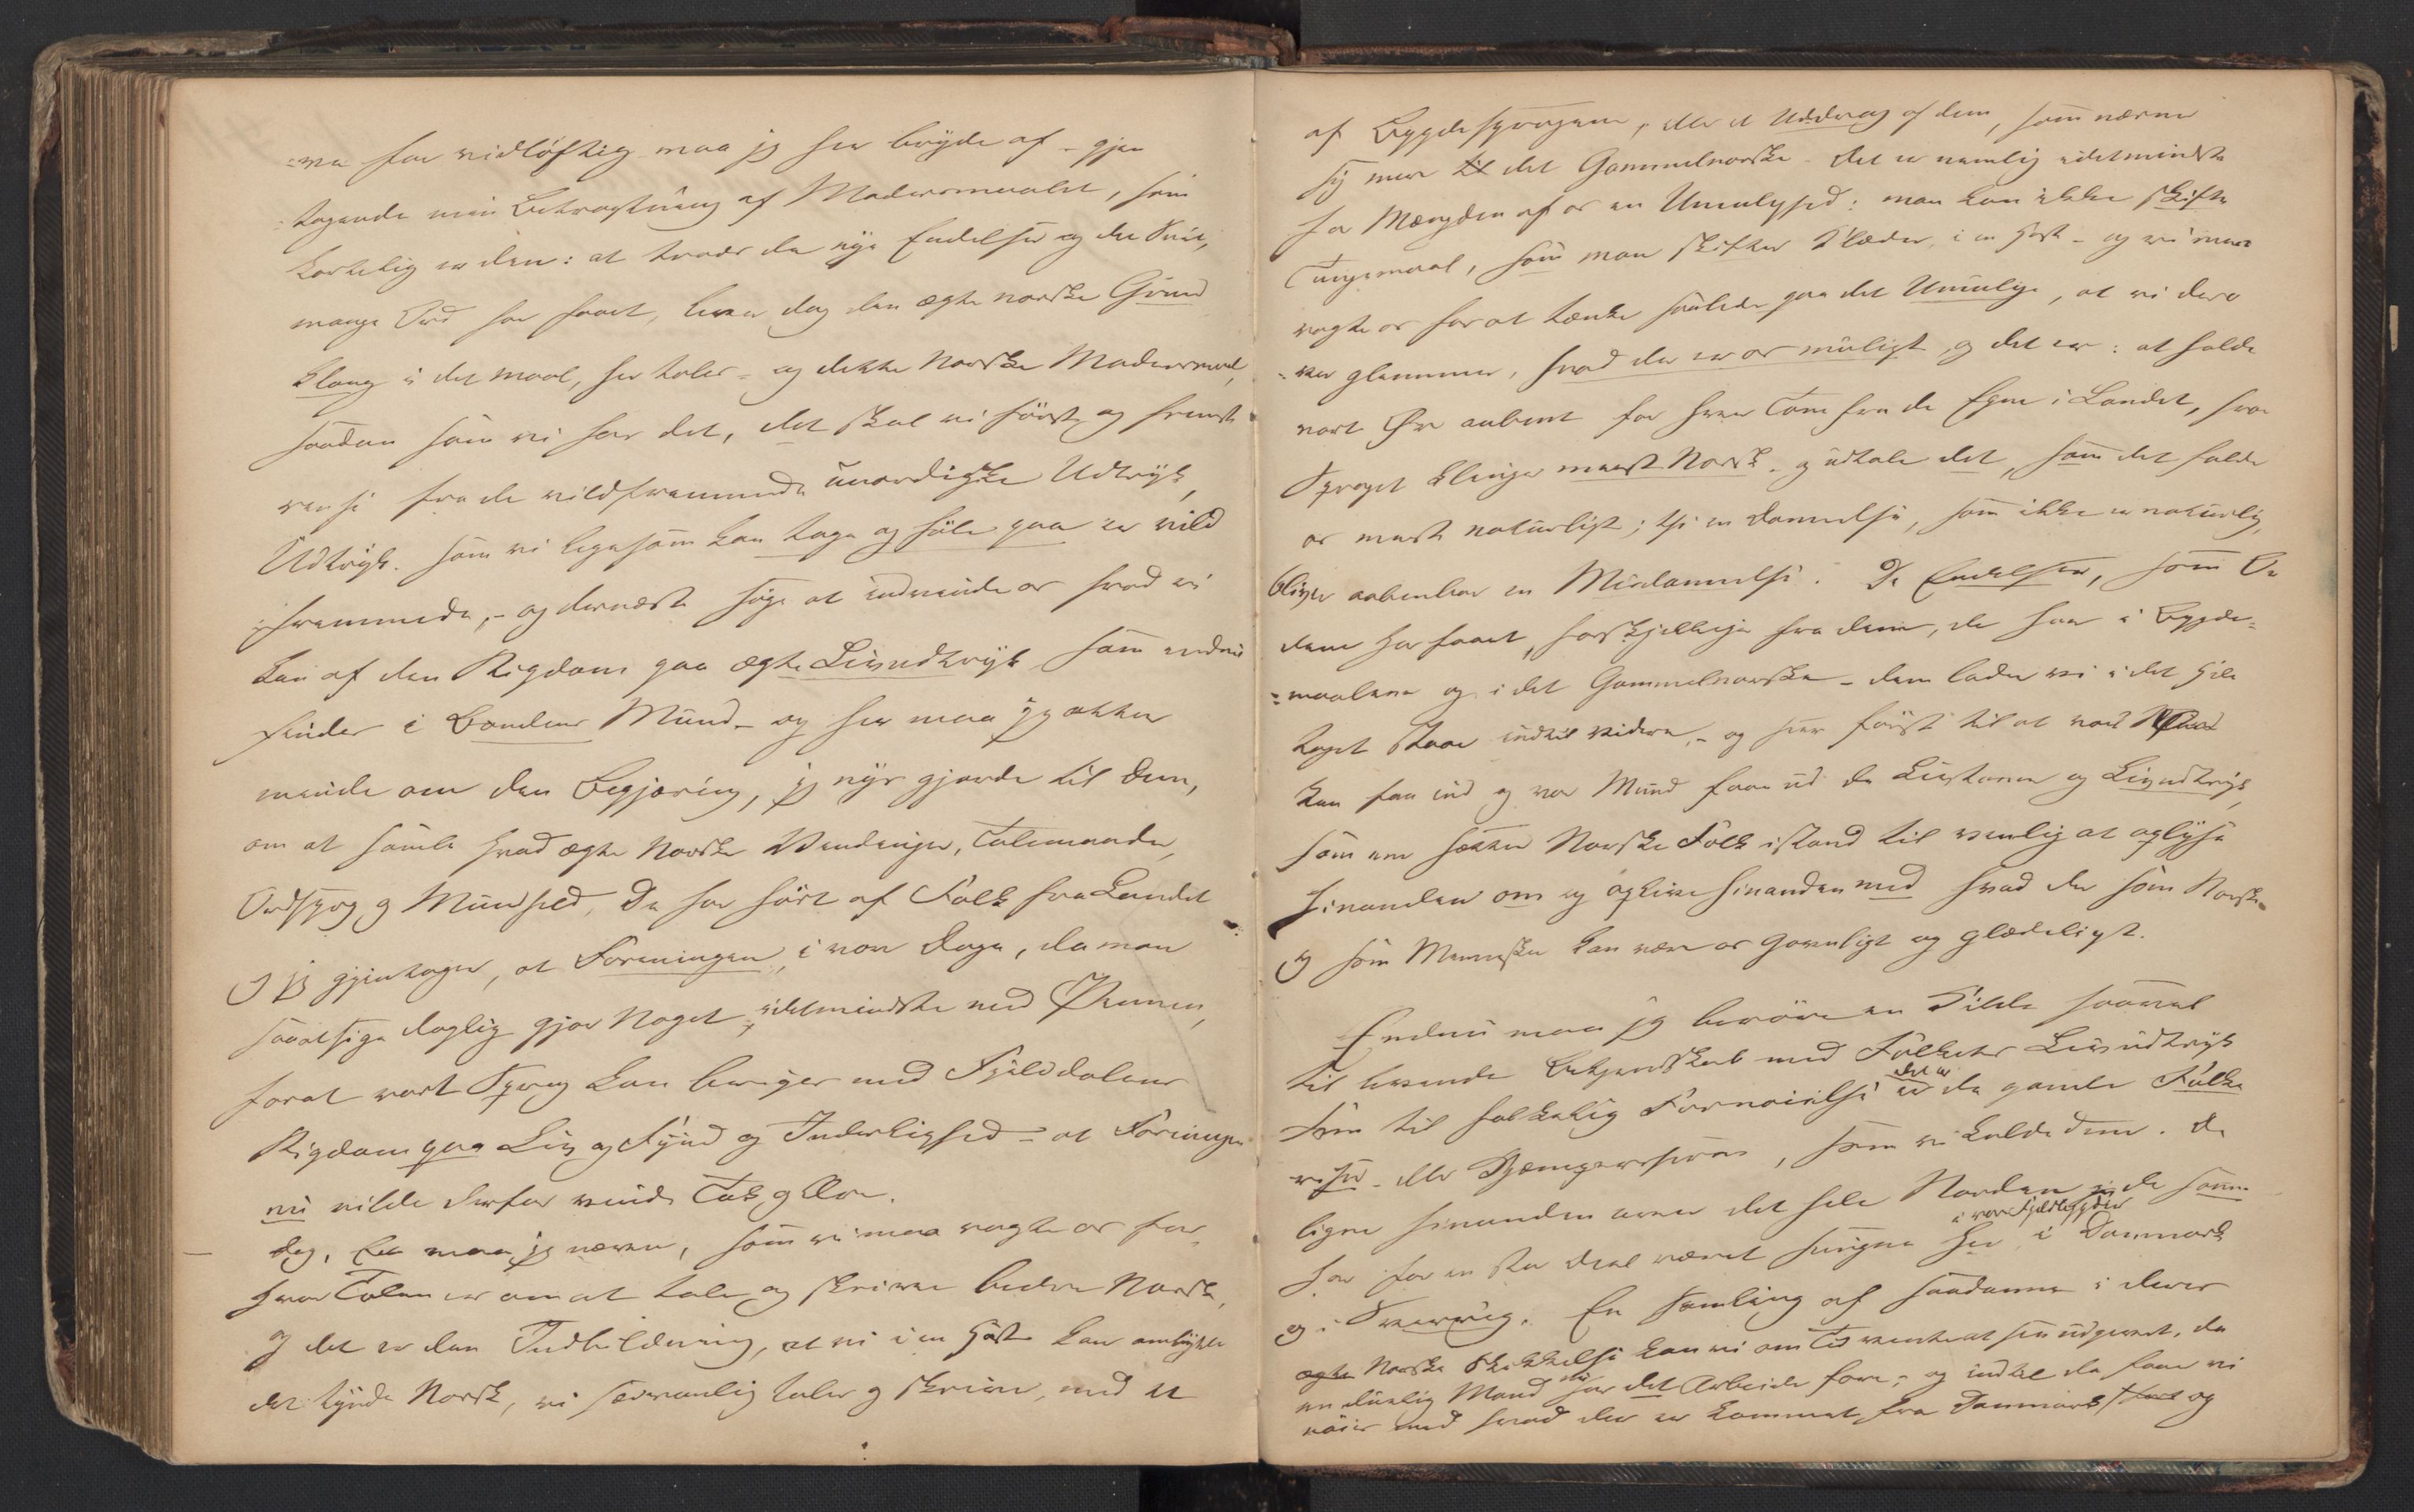 =re for vidløftig maa jg her bryde af – gjen
=tagende min Betragtning af Modersmaalet, som
kortelig er den: at trods de nye Endelser og det Snit,
mange Ord har faaet, lever dog den ægte norske Grund
klang i det Maal, her tales – og dette Norske Modersmaal,
saadan som vi har det, det skal vi først og fremst
rense fra de vildfremmede unordiske Udtryk,
Udtryk som vi ligesom kan tage og føle paa er vild
=fremmede, – og dernæst søge at indvinde os hvad vi
kan af den Rigdom paa ægte Livsudtryk som endnu
findes i Bondens Mund – og her maa jg atter
minde om den Begjæring, jg nys gjorde til Dem,
om at samle hvad ægte Norske Vendinger, Talemaader,
Ordsprog og Mundheld, De har hørt af Folk fra Landet
Og jg gjentager, at Foreningen, i vore Dage, da man
saaatsige daglig gjør Noget, idetmindste med Pennen,
forat vort Sprog kan beriges med Fjelddalens
Rigdom paa Liv og Fynd og Inderlighed – at Foreningen
nu vilde derfor vinde Tak og Ære.
Dog, Eet maa jg nævne, som vi maa vogte os for,
hvor Talen er om at tale og skrive bedre Norsk,
og det er den Indbildning, at vi i en Hast kan ombytte
det tynde Norsk, vi sædvanlig taler og skriver, med et
af Bygdesprogene, eller et Uddrag af dem, som nærmer
sig mere til det Gammelnorske. Det er nemlig idetmindste
for Mængden af os en Umulighed: man kan ikke skifte
Tungemaal, som man skifter Klæder, i en Hast – og vi maa
vogte os for at tænke saaledes paa det Umulige, at vi dero
=ver glemmer, hvad der er os muligt, og det er: at holde
vort Øre aabent for hver Tone fra de Egne i Landet, hvor
Sproget klinger meest Norsk, og udtale det, som det falder
os mest naturligt; thi en Dannelse, som ikke er naturlig,
bliver aabenbar en Misdannelse. De Endelser, som Or
dene har faaet, forskjellige fra dem, de har i Bygde=
=maalene og i det Gammelnorske – dem lader vi i det Hele
taget staae indtil videre, – og seer først til at vort
kan faa ind og vor Mund faae ud de Livstoner og Livsudtryk,
som sætter Norske Folk istand til venlig at oplyse
hinanden om og oplive hinanden med hvad der som Norske
og som Mennesker kan være os gavnligt og glædeligt.
Endnu maa jg berøre en Kilde saavel
til levende Bekjendskab med Folkets Livsudtryk
som til folkelig Fornøielse det er de gamle Folke
viser – eller Kjæmpeviserne, som vi kalde dem. De
ligne hinanden over det hele Norden, de samme
i vore Fjeldbygder
har for en stor Deel været sungne her i Danmark
og i Sverrig. En Samling af saadanne i deres
ægte Norske Skikkelse kan vi om Tid vente at see udgivet, da
en duelig Mand nu har det Arbeide fore; og indtil da faae vi
nøies med hvad der er kommet fra Danmark og